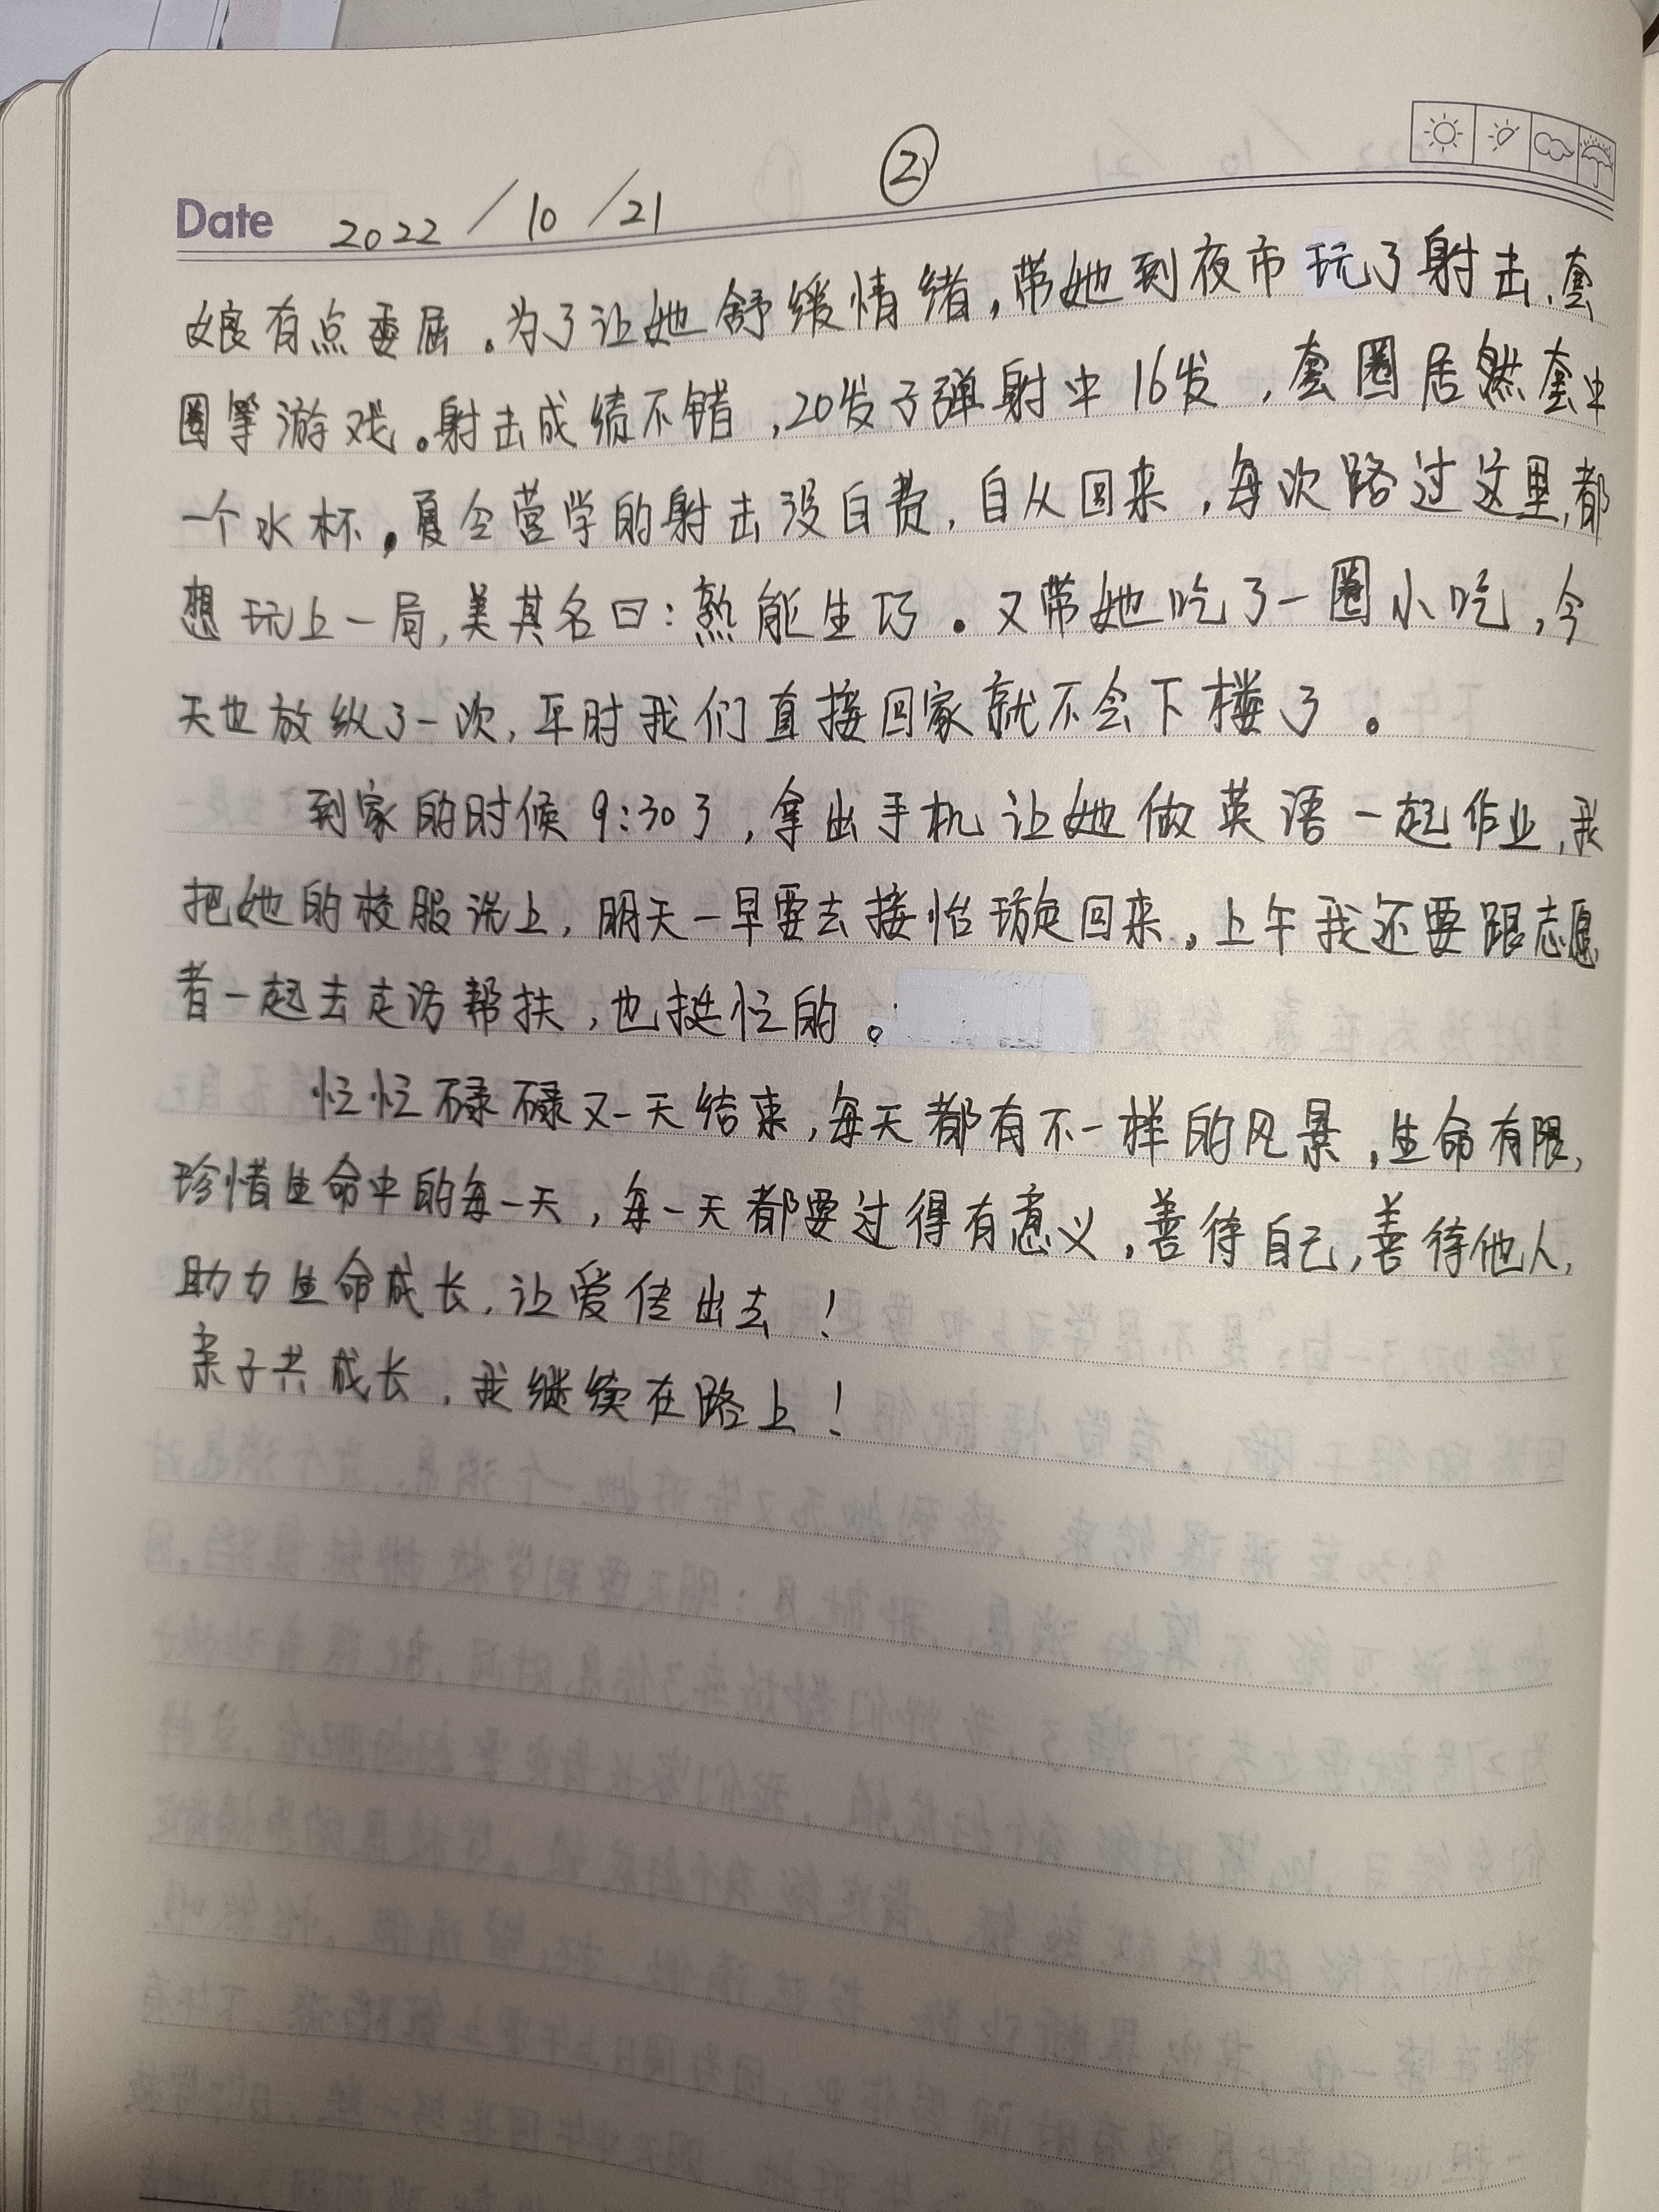 ②
Date 2022/10/21
娘有点委屈。为了让她舒缓情绪,带她到夜市玩了射击、套
圈等游戏。射击成绩不错,20发子弹射中16发,套圈居然套中
一个水杯。夏令营学的射击没白费,自从回来,每次路过这里,都
想玩上一局,美其名曰:熟能生巧。又带她吃了一圈小吃,今
天也放纵了一次,平时我们直接回家就不会下楼了。
到家的时候9:30了,拿出手机让她做英语一起作业,我
把她的校服洗上,明天一早要去接怡璇回来,上午我还要跟志愿
者一起去走访帮扶,也挺忙的。
忙忙碌碌又一天结束,每天都有不一样的风景,生命有限,
珍惜生命中的每一天,每一天都要过得有意义,善待自己,善待他人,
助力生命成长,让爱传出去!
亲子共成长,我继续在路上!